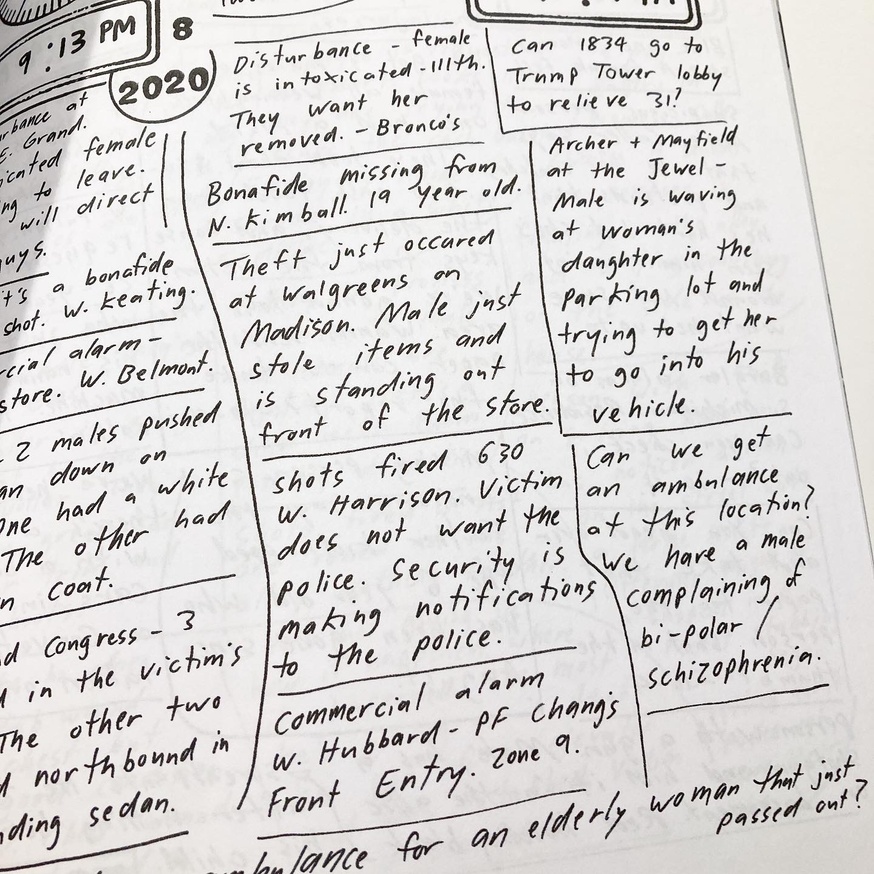 9:13 PM
8
2020
at
E. Grand.
female
to leave.
will direct
it's a bonafide
shot. W. Keating.
alarm-
store. W. Belmont.
2 males pushed
down on
One had a white
The other had
coat.
Congress - 3
in the victim's
The other two
northbound in
sedan.
Disturbance - female
is intoxicated - 111th.
They want her
removed. - Bronco's
Bonafide missing from
N. Kimball. 19 year old.
Theft just occared
at Walgreens on
Madison. Male just
stole items and
is standing out
front of the store.
shots fired 630
W. Harrison. Victim
does not want the
police. Security is
making notifications
to the police.
Commercial alarm
W. Hubbard - PF Chang's
Front Entry. Zone 9.
Can 1834 go to
Trump Tower lobby
to relieve 31?
Archer + Mayfield
at the Jewel -
Male is waving
at woman's
daughter in the
parking lot and
trying to get her
to go into his
vehicle.
Can we get
an ambulance
at this location?
We have a male
complaining of
bi-polar /
schizophrenia.
for an elderly woman that just
passed out?